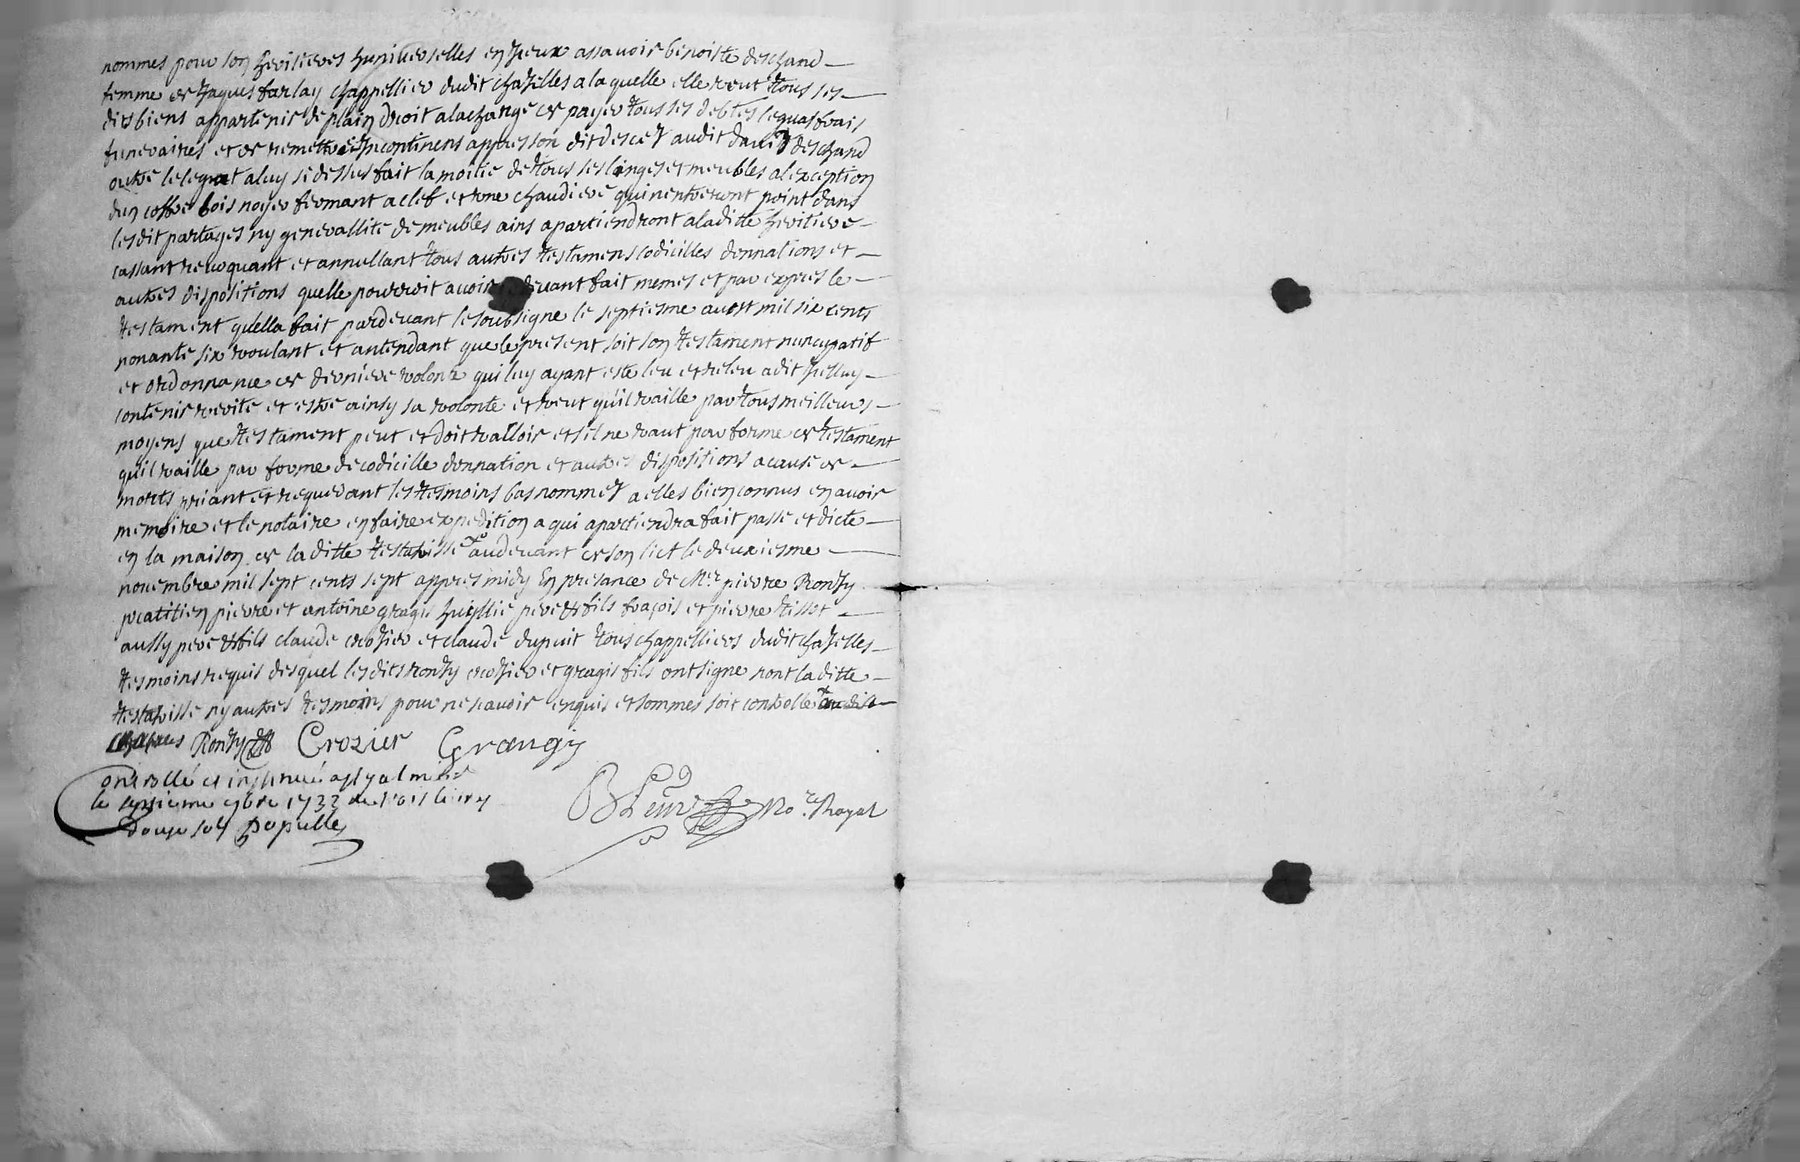 nommes pour son heritieres huniverselles en seux assavoir benoiste deschand
femme de Jaques farlay chappellier dudit chazelles a laquelle elle veut tous ses
dits biens appartenir de plain droit alacharge de payer tous ses debtes leguas frais
funeraires et de remettre incontinens appres son dit desces audit david deschand
outre le leguat aluy si dessus fait la moitie de tous ses linges et meubles al exception
dun coffre bois noyer fermant a clef et une chaudiere qui nentreront point dans
lesdit partages ny generallite de meubles ains apartiendront a laditte heritiere
cassant revoquant et annullant tous autres testamens codicilles donnations et
autres dispositions quelle pourroit avoir devant fait memes et par expres le
testament quella fait pardevant le soubsigne le septiesme aoust mil six cents
nonante six voulant et antendant que le present soit son testament nuncupatif
et ordonnance de derniere volonte qui luy ayant este leu et releu a dit Icelluy
contenir verite et estre ainsy sa volonte et veut quil vaille par tous meilleurs
moyens que testament peut et doit valloir et sil ne vaut par forme de testament
quil vaille par forme de codicille donnation et autres dispositions a cause de
morts priant et requerant les tesmoins bas nommez a elles bien connus en avoir
memoire et le notaire en faire expedition a qui apartiendra fait passe et dicte
en la maison de laditte testatrisse audevant de son lict le deuxiesme
novembre mil sept cents sept appres midy En presance de Mre pierre Ronzy
praticien pierre et antoine gragis père et fils fraçois et pierre tissot
aussy pere et fils claude crozier et claude dupuit tous chappelliers dudit chazelles
tesmoins requis desquel lesdits ronzy crozier et gragis fils ont signe non laditte
testatrisse ny autres tesmoins pour ne scavoir enquis et sommes soit controlle
Ronzy Crozier Grangis
Controllé et insinué a st galmier
le septieme 9bre 1722
douze sols Populle
No.re Royal